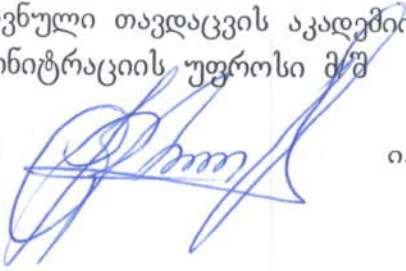 ვნული თავდაცვის აკადემი
ნიტრაციის უფროსი მ/შ
ი.